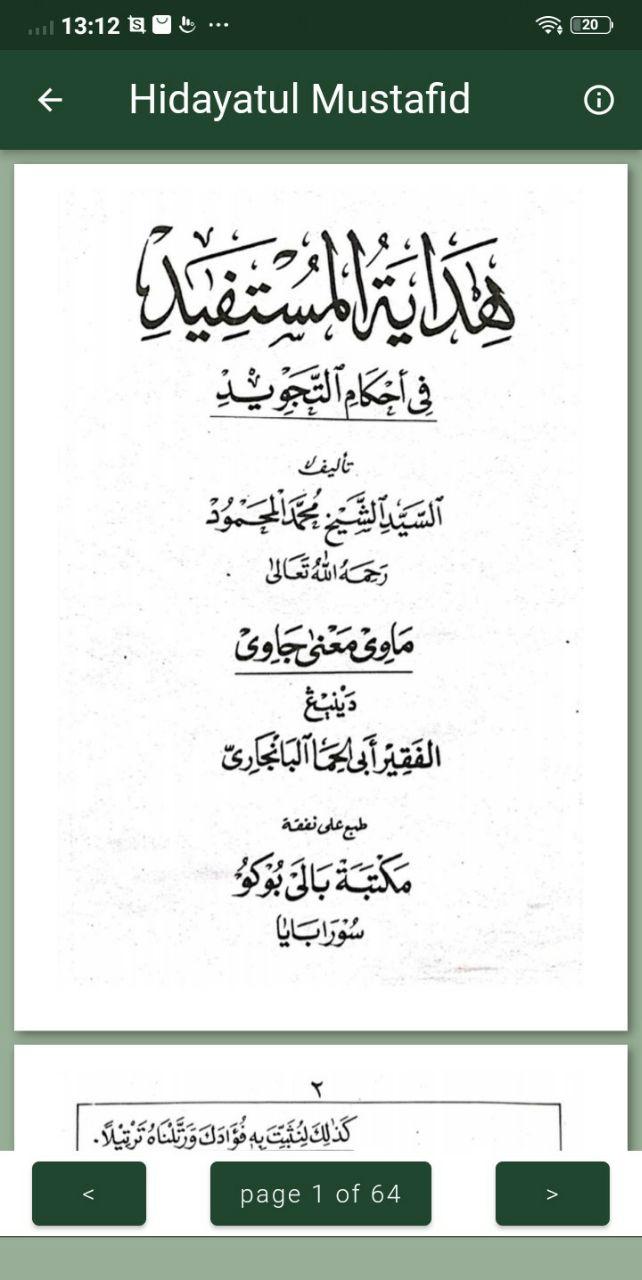 13:12
20
Hidayatul Mustafid
هِدَايَةُ الْمُسْتَفِيْدِ
فِى أَحْكَامِ التَّجْوِيْدِ
تأليف
اَلسَّيِّدِ الشَّيْخِ مُحَمَّدِ الْمَحْمُوْدْ
رَحِمَهُ اللهُ تَعَالىٰ
مَاوِىْ مَعْنىٰ جَاوِىْ
دَيْنِيْڠْ
الفَقِيْرْ أَبِى الْحِمَا اَلْبَانْجَارِىّ
طبع على نفقة
مَكْتَبَةْ بَالَىْ بُوْكُوْ
سُوْرَابَايَا
٢
كَذٰلِكَ لِنُثَبِّتَ بِهِ فُؤَادَكَ وَرَتَّلْنَاهُ تَرْتِيْلًا.
<
page 1 of 64
>